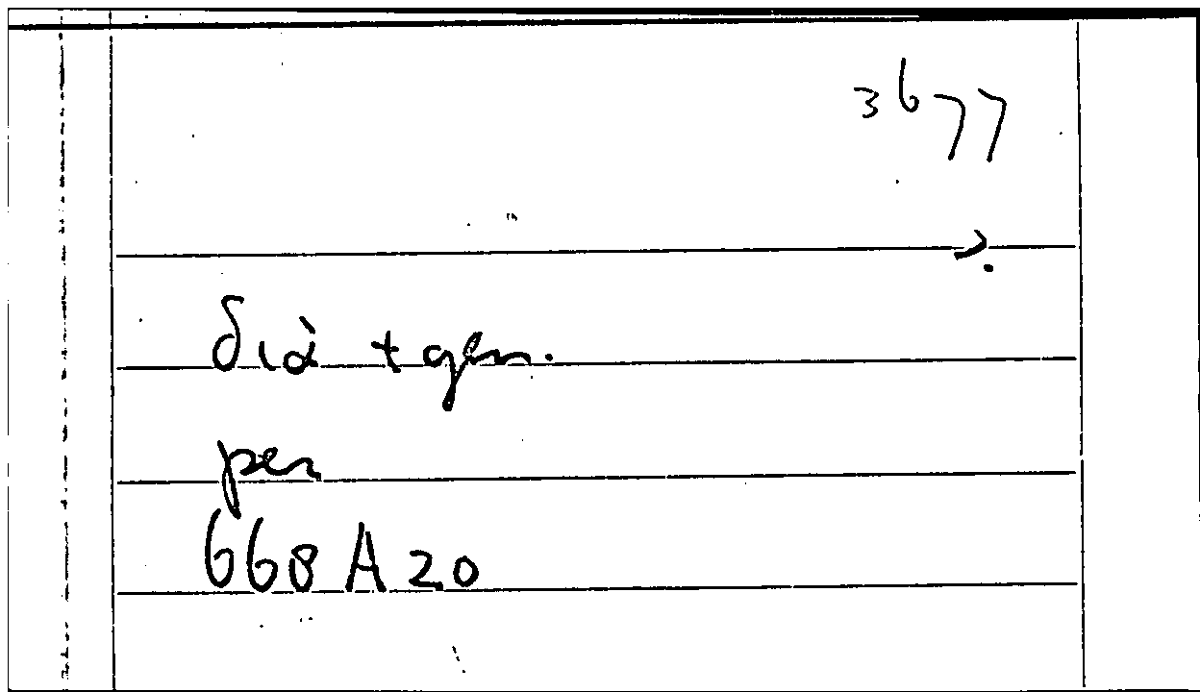 3677
?.
διὰ + gen.
per
668 A 20